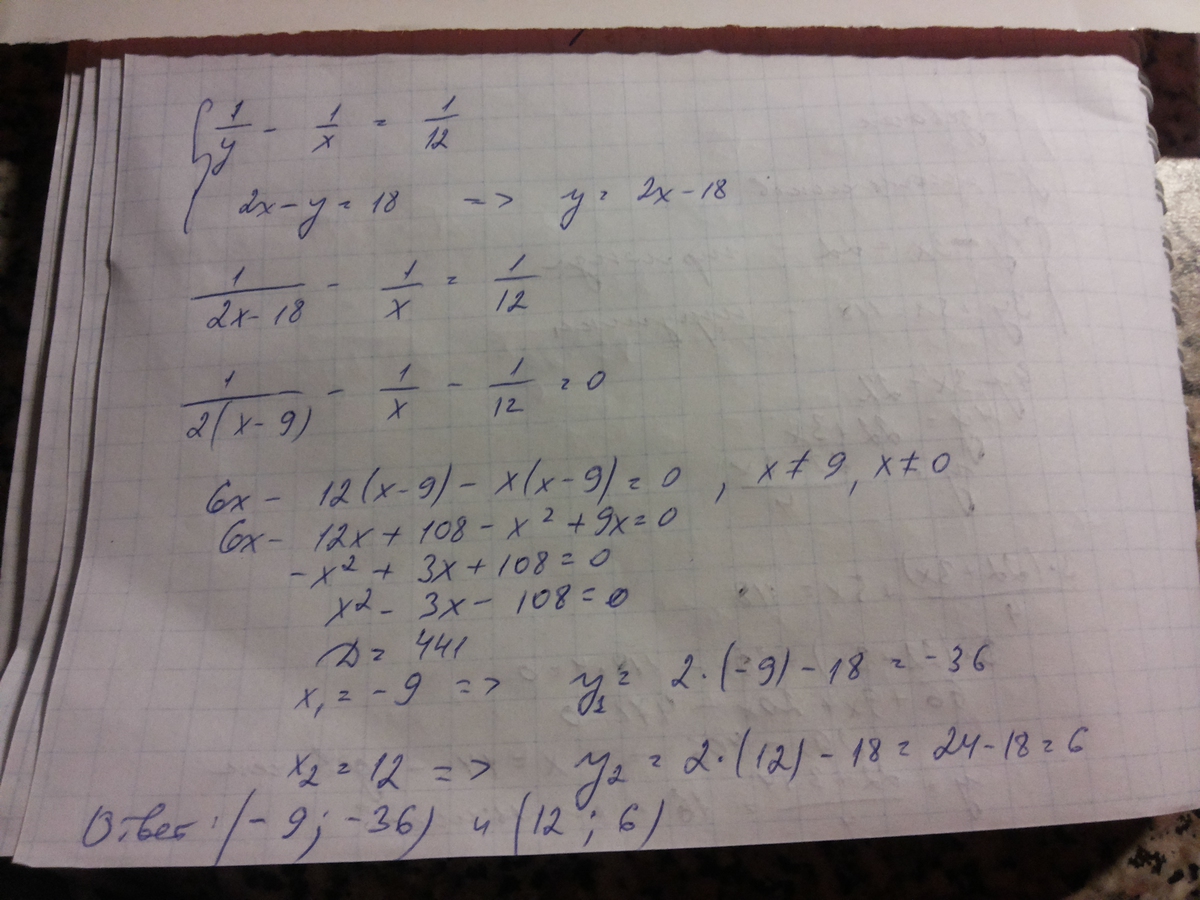 1/y - 1/x = 1/12
2x - y = 18 => y = 2x - 18
1/(2x - 18) - 1/x = 1/12
1/(2(x - 9)) - 1/x - 1/12 = 0
6x - 12(x - 9) - x(x - 9) = 0 , x ≠ 9, x ≠ 0
6x - 12x + 108 - x² + 9x = 0
-x² + 3x + 108 = 0
x² - 3x - 108 = 0
D = 441
x₁ = -9 => y₁ = 2·(-9) - 18 = -36
x₂ = 12 => y₂ = 2·(12) - 18 = 24 - 18 = 6
Ответ: (-9; -36) и (12; 6)